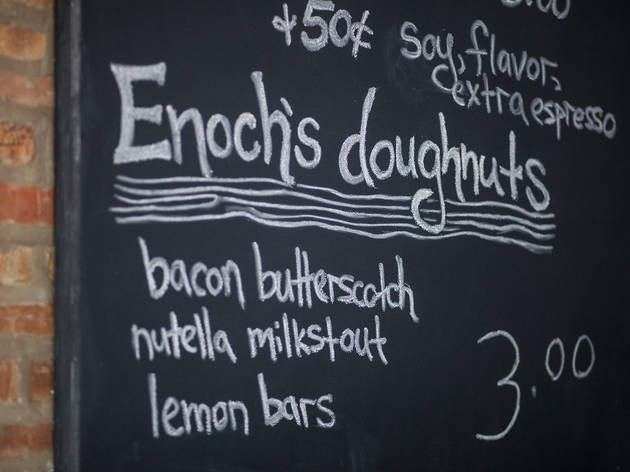 +50¢ soy, flavor,
extra espresso
Enoch's doughnuts
bacon butterscotch
nutella milkstout
lemon bars 3.00